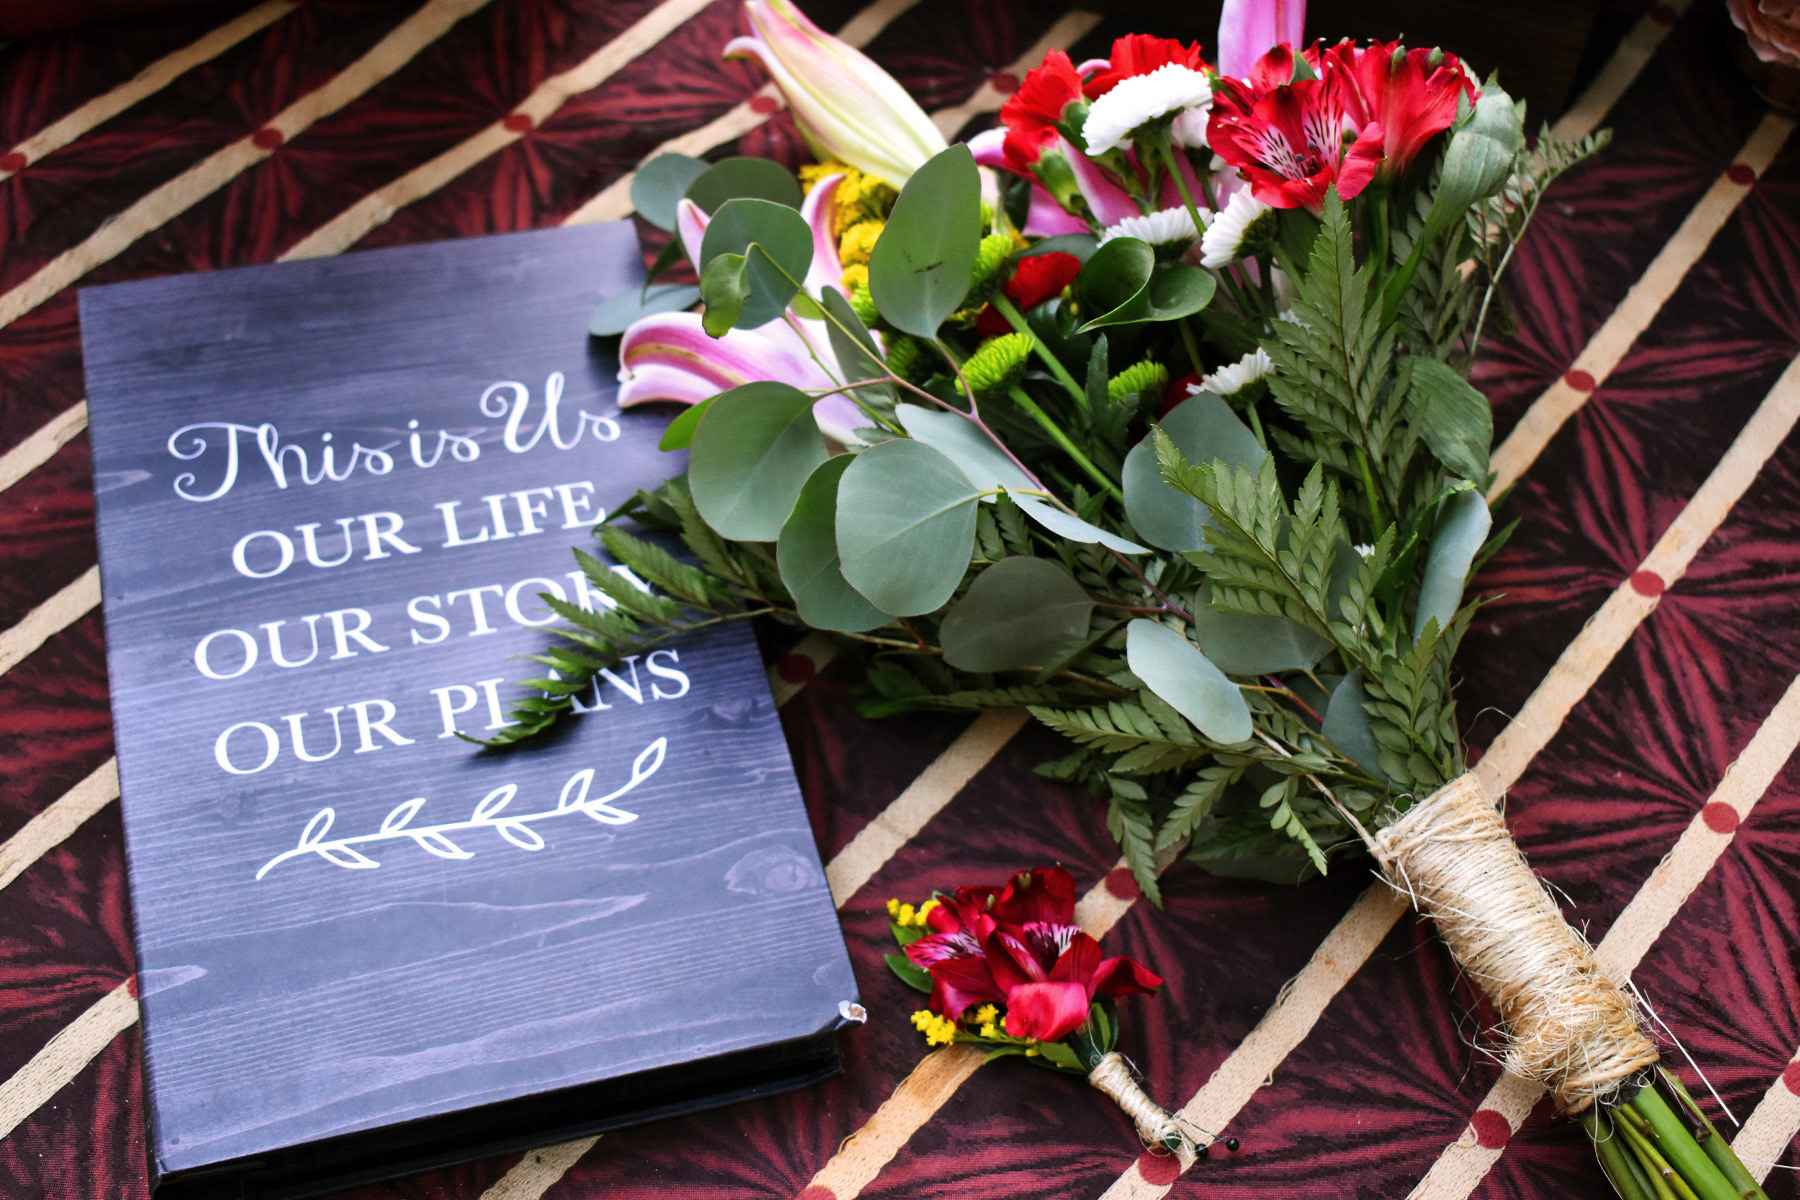 This is Us
OUR LIFE
OUR STORY
OUR PLANS